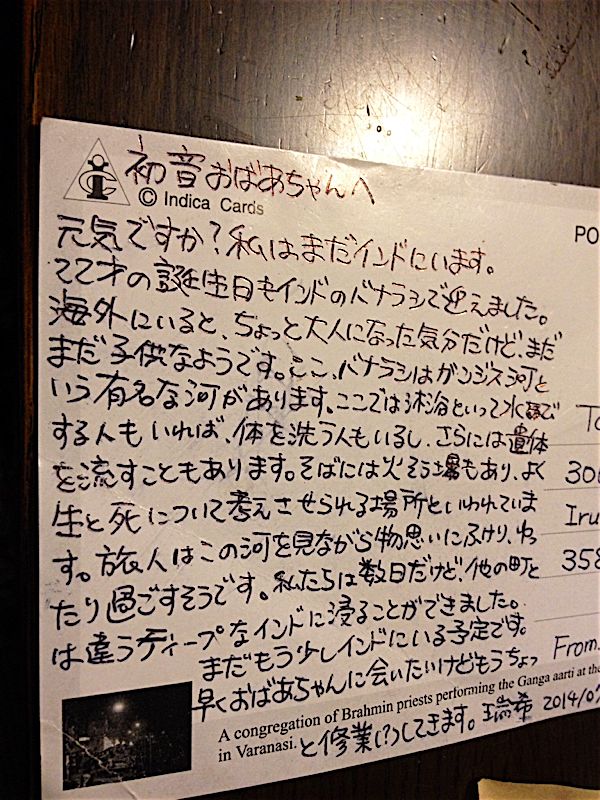 初音おばあちゃんへ
© Indica Cards
PO
元気ですか?私はまだインドにいます。
22才の誕生日もインドのバナラシで迎えました。
海外にいると、ちょっと大人になった気分だけど、まだ
まだ子供なようです。ここ、バナラシはガンジス河と
いう有名な河があります。ここでは沐浴といって水浴びで
する人もいれば、体を洗う人もいるし、さらには遺体
を流すこともあります。そばには火そう場もあり、よく
生と死について考えさせられる場所といわれていま
す。旅人はこの河を見ながら物思いにふけり、ゆっ
たり過ごすそうです。私たちは数日だけど、他の町と
は違うディープなインドに浸ることができました。
まだもう少しインドにいる予定です。
早くおばあちゃんに会いたいけどもうちょっ
と修業(?)してきます。瑞希 2014/0
To
300
Iru
358
From.
A congregation of Brahmin priests performing the Ganga aarti at the
in Varanasi.